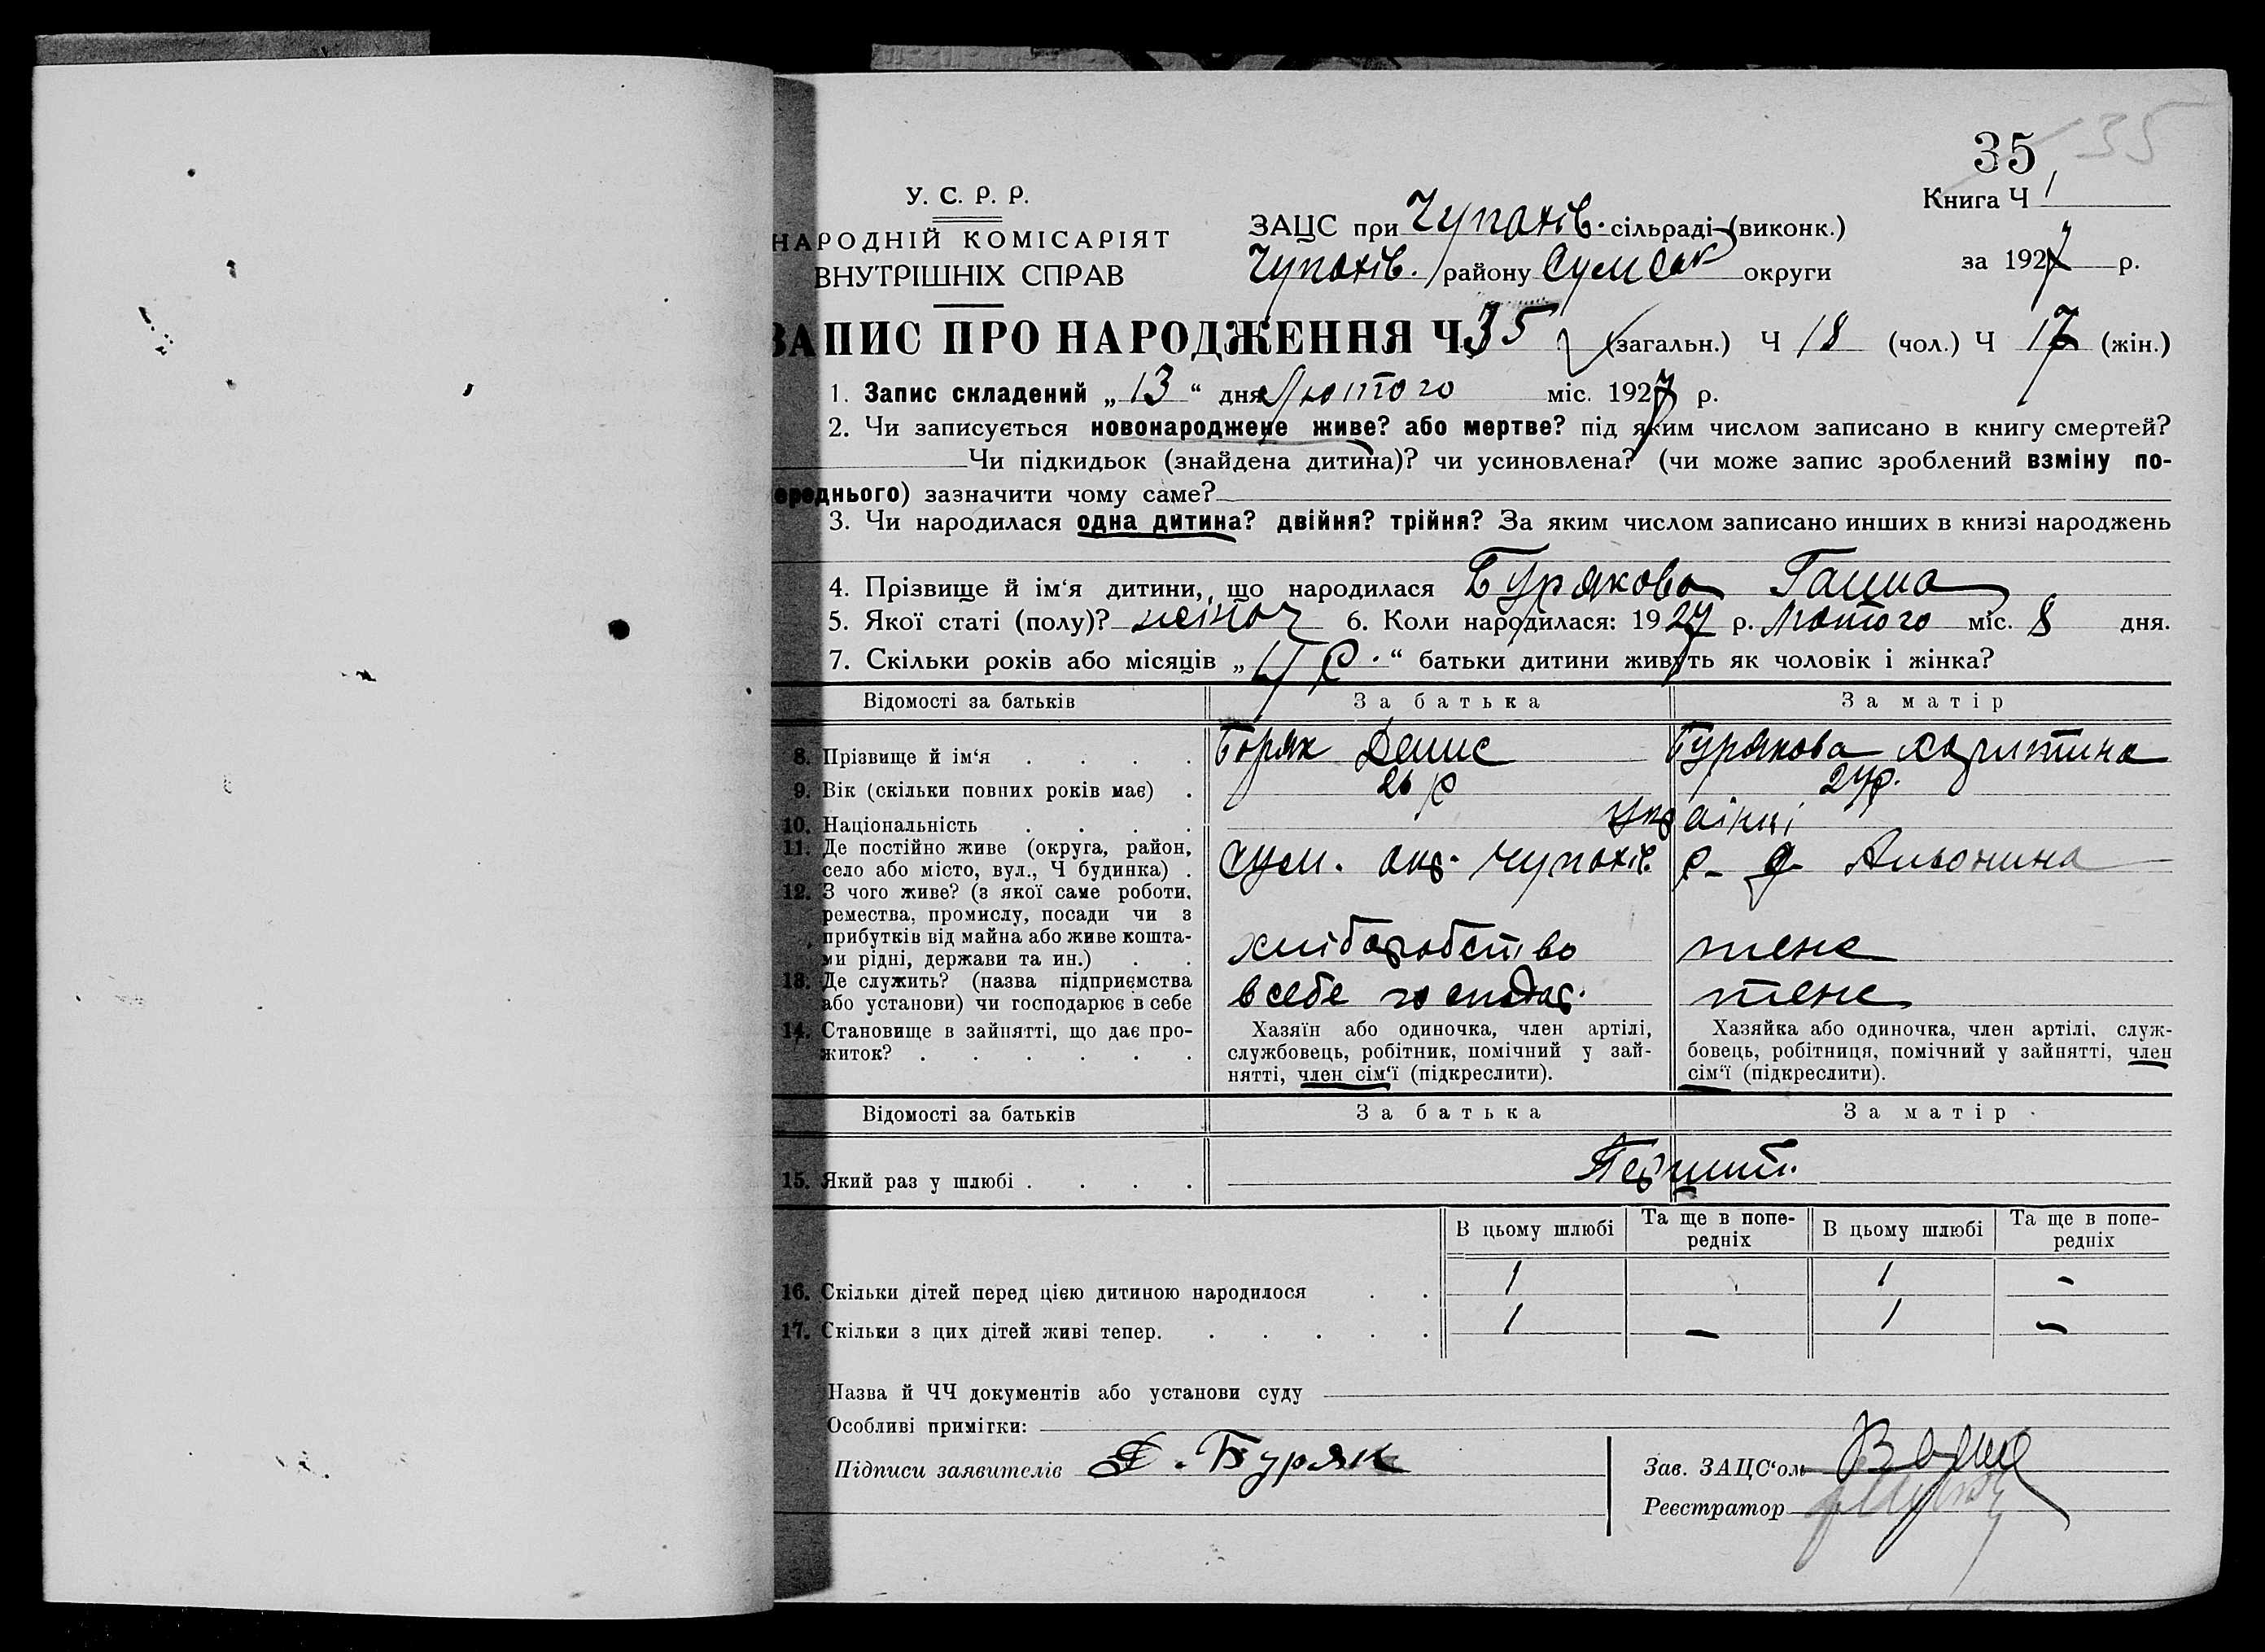 35 35
Книга Ч 1
У. С. Р. Р.
НАРОДНІЙ КОМІСАРІЯТ
ВНУТРІШНІХ СПРАВ
ЗАЦС при Чупахів. сільраді (виконк.)
Чупахів. району Сумськ округи
за 1927 р.
ЗАПИС ПРО НАРОДЖЕННЯ Ч. 35 (загальн.) Ч 18 (чол.) Ч 17 (жін.)
1. Запис складений „ 13 “ дня Лютого міс. 1927 р.
2. Чи записується новонароджене живе? або мертве? під яким числом записано в книгу смертей?
Чи підкидьок (знайдена дитина)? чи усиновлена? (чи може запис зроблений взміну по-
ереднього) зазначити чому саме?
3. Чи народилася одна дитина? двійня? трійня? За яким числом записано инших в книзі народжень
4. Прізвище й ім‘я дитини, що народилася Бурякова Ганна
5. Якої статі (полу)? жіноч 6. Коли народилася: 1927 р. Лютого міс. 8 дня.
7. Скільки років або місяців „ р. “ батьки дитини живуть як чоловік і жінка?
Відомості за батьків За батька За матір
8. Прізвище й ім‘я Буряк Денис Бурякова Харитина
9. Вік (скільки повних років має) 26 р 24 р.
10. Національність Українці
11. Де постійно живе (округа, район,
село або місто, вул., Ч будинка) Сум. окр. Чупахів. р-
12. З чого живе? (з якої саме роботи,
ремества, промислу, посади чи з
прибутків від майна або живе кошта-
ми рідні, держави та ин.) хліборобство теж
13. Де служить? (назва підприємства
або установи) чи господарює в себе в себе господар. теж
14. Становище в зайнятті, що дає про-
житок?
Хазяїн або одиночка, член артілі,
службовець, робітник, помічний у зай-
нятті, член сім‘ї (підкреслити).
Хазяйка або одиночка, член артілі, служ-
бовець, робітниця, помічний у зайнятті, член
сім‘ї (підкреслити).
Відомості за батьків За батька За матір
15. Який раз у шлюбі Перший.
В цьому шлюбі Та ще в попе-
редніх В цьому шлюбі Та ще в попе-
редніх
16. Скільки дітей перед цією дитиною народилося 1 1 -
17. Скільки з цих дітей живі тепер. 1 — 1 —
Назва й ЧЧ документів або установи суду
Особливі примітки:
Підписи заявителів Д. Буряк
Зав. ЗАЦС‘ом
Реєстратор